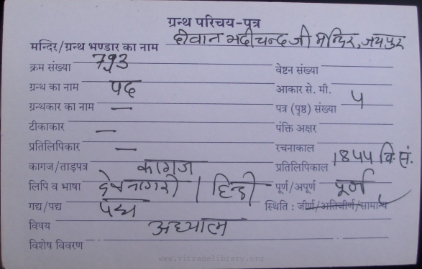 ग्रन्थ परिचय-पत्र
मन्दिर/ग्रन्थ भण्डार का नाम दीवान भदीचन्द जी मन्दिर, जयपुर
क्रम संख्या 793 वेष्टन संख्या
ग्रन्थ का नाम पद आकार से. मी.
ग्रन्थकार का नाम — पत्र (पृष्ठ) संख्या 4
टीकाकार — पंक्ति अक्षर
प्रतिलिपिकार — रचनाकाल
कागज/ताड़पत्र कागज प्रतिलिपिकाल 1844 वि.सं.
लिपि व भाषा देवनागरी / हिन्दी पूर्ण/अपूर्ण पूर्ण
गद्य/पद्य पद्य स्थिति : जीर्ण/अतिजीर्ण/सामान्य
विषय अध्यात्म
विशेष विवरण